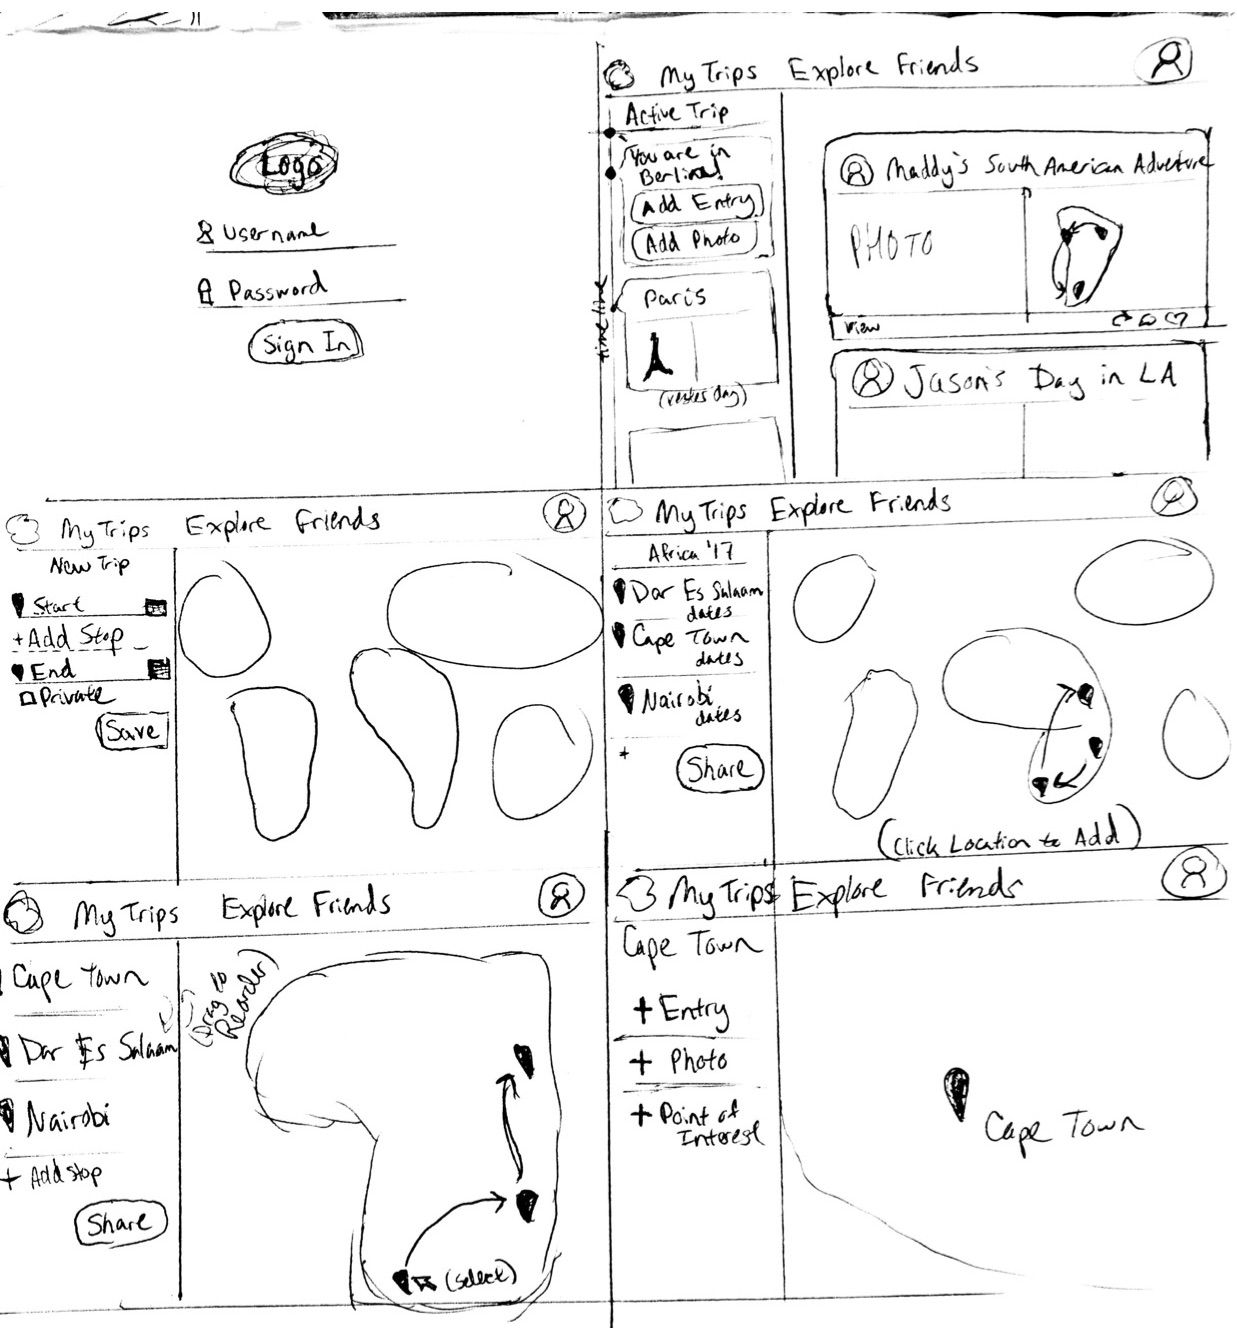 Logo
Username
Password
Sign In
My Trips Explore Friends
Active Trip
You are in
Berlin!
Add Entry
Add Photo
timeline
Paris
(yesterday)
Maddy's South American Adventure
PHOTO
View
Jason's Day in LA
My Trips Explore Friends
New Trip
Start
+ Add Stop
End
Private
Save
My Trips Explore Friends
Africa '17
Dar Es Salaam
dates
Cape Town
dates
Nairobi
dates
+
Share
(Click Location to Add)
My Trips Explore Friends
Cape Town
Dar Es Salaam
(Drag to
Reorder)
Nairobi
+ Add stop
Share
(select)
My Trips Explore Friends
Cape Town
+ Entry
+ Photo
+ Point of
Interest
Cape Town